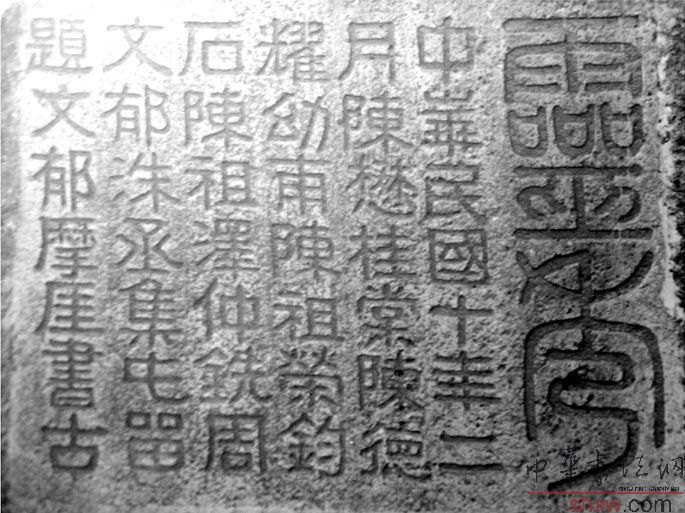 靈
中華民國十年二
月陳懋桂棠陳德
耀幼甫陳祖榮鈞
石陳祖澤仲銑周
文郁洙丞集屯畱
題文郁摩崖書古
中华书法网